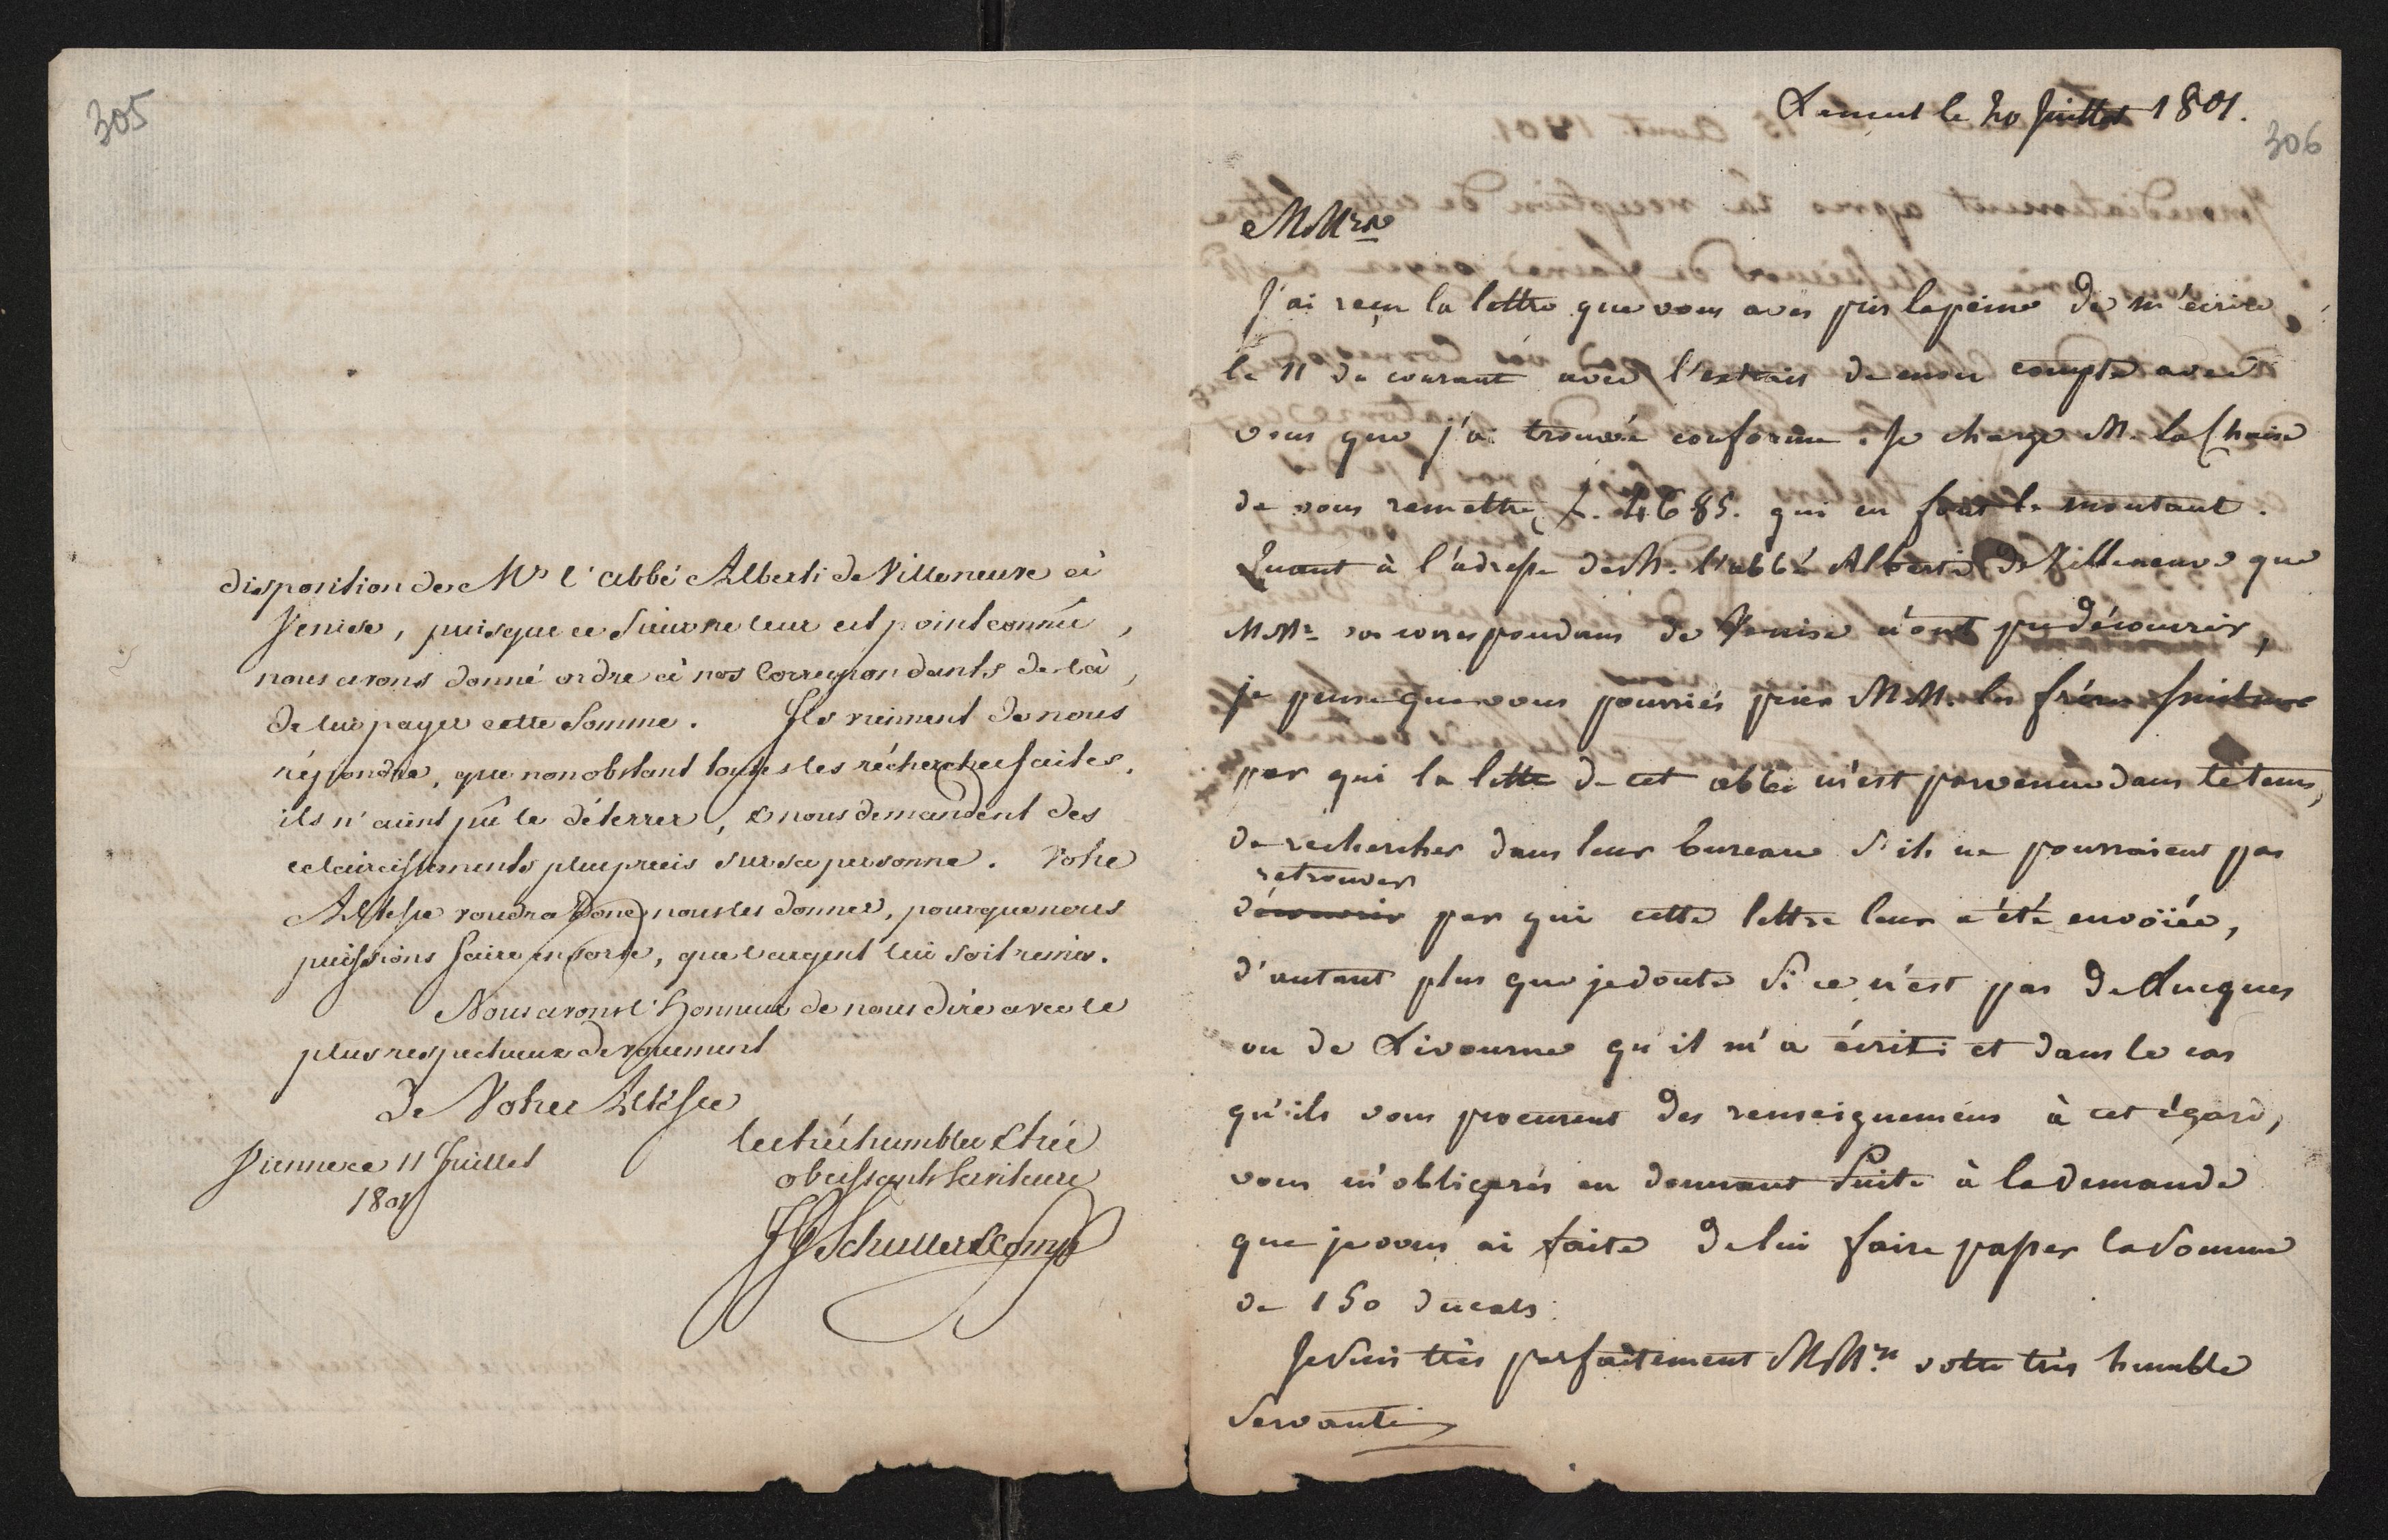 305
disposition de Mr l'abbé Alberti de Villeneuve à
Venise, puisque ce Sieur ne leur est point connû,
nous avons donné ordre à nos Correspondants de là,
de lui payer cette Somme. Ils viennent de nous
répondre, que nonobstant toutes les récherches faites,
ils n'aient pû le déterrer, & nous demandent des
eclaircissements plus precis sur sa personne. Votre
Altesse voudra donc nous les donner, pour que nous
puissions faire en sorte, que l'argent lui soit remis.
Nous avons l'Honneur de nous dire avec le
plus respectueux devouement
De Votre Altesse
les très humbles & très
obeissants Serviteurs
Vienne ce 11 Juillet
1801
Schuller & Comp
306
Lancut le 20 Juillet 1801.
MMrs
J'ai reçu la lettre que vous avés pris la peine de m'écrire
le 11 du courant avec l'extrait de mon compte avec
vous que j'ai trouvée conforme. Je charge M. la Chaise
de vous remettre f. 4685. qui en font le montant.
Quant à l'adresse de M. l'abbé Alberti de Villeneuve que
MMrs vos correspondans de Venise n'ont pu découvrir,
je pense que vous pourriés prier MM. les fréres
par qui la lettre de cet abbé m'est parvenue dans le tems,
de rechercher dans leur bureau s'ils ne pourraient pas
retrouver
découvrir par qui cette lettre leur a été envoïée,
d'autant plus que je doute si ce n'est pas de Lucques
ou de Livourne qu'il m'a écrit: et dans le cas
qu'ils vous procurent des renseignemens à cet égard,
vous m'obligerés en donnant Suite à la demande
que je vous ai faite de lui faire passer la Somme
de 150 ducats.
Je suis très parfaitement MMrs votre très humble
Servante